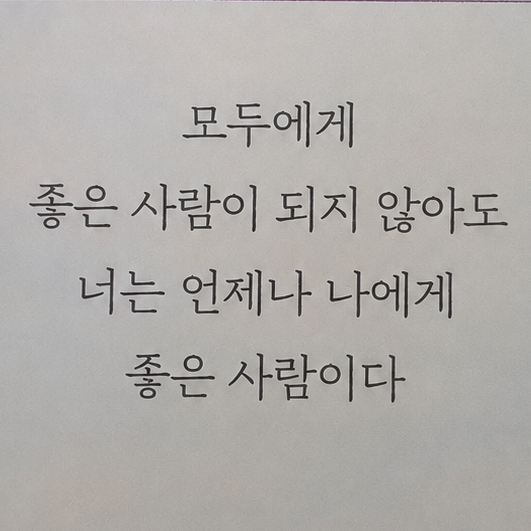 모두에게
좋은 사람이 되지 않아도
너는 언제나 나에게
좋은 사람이다